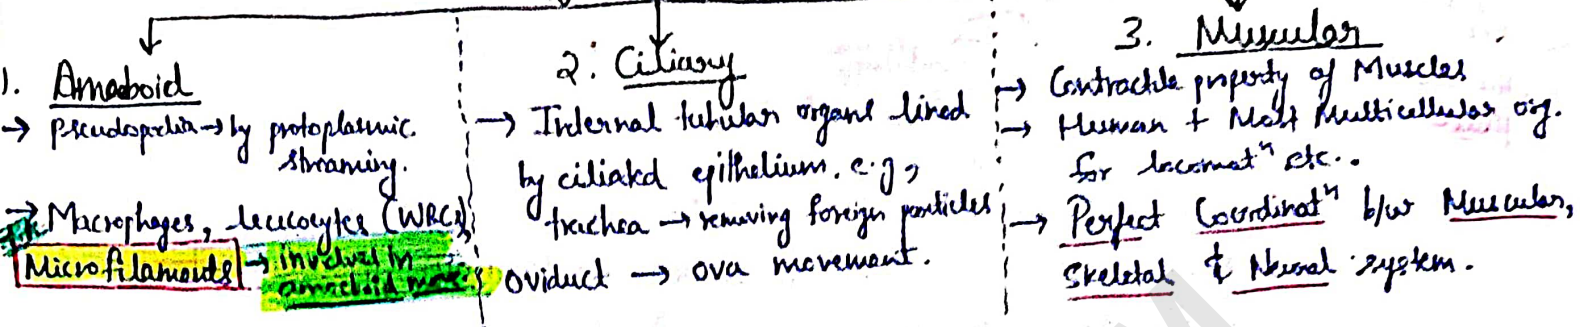 1. Amaeboid
→ Pseudopodia → by protoplasmic
streaming.
→ Macrophages, leucocytes (WBCs)
Microfilaments → involved in
amoeboid move.
2. Ciliary
→ Internal tubular organs lined
by ciliated epithelium. e.g,
trachea → removing foreign particles
oviduct → ova movement.
3. Muscular
→ Contractile property of Muscles
→ Human + Most Multicellular org.
for locomotⁿ etc..
→ Perfect Coordinatⁿ b/w Muscular,
Skeletal & Neural system.